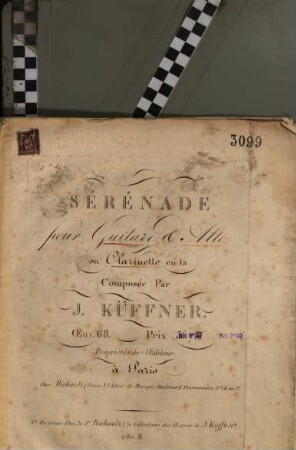 3099
SÉRÉNADE
pour Guitare & Alto
ou Clarinette en la
Composée Par
J. KÜFFNER.
Œuv. 68. Prix
Propriété de l'Editeur.
à Paris
Chez Richault, Editeur de Musique, Boulevard Poissonnière, N°
On trouve Chez le Sr. Richault, la Collection des Œuvres de J. Küffner.
R.